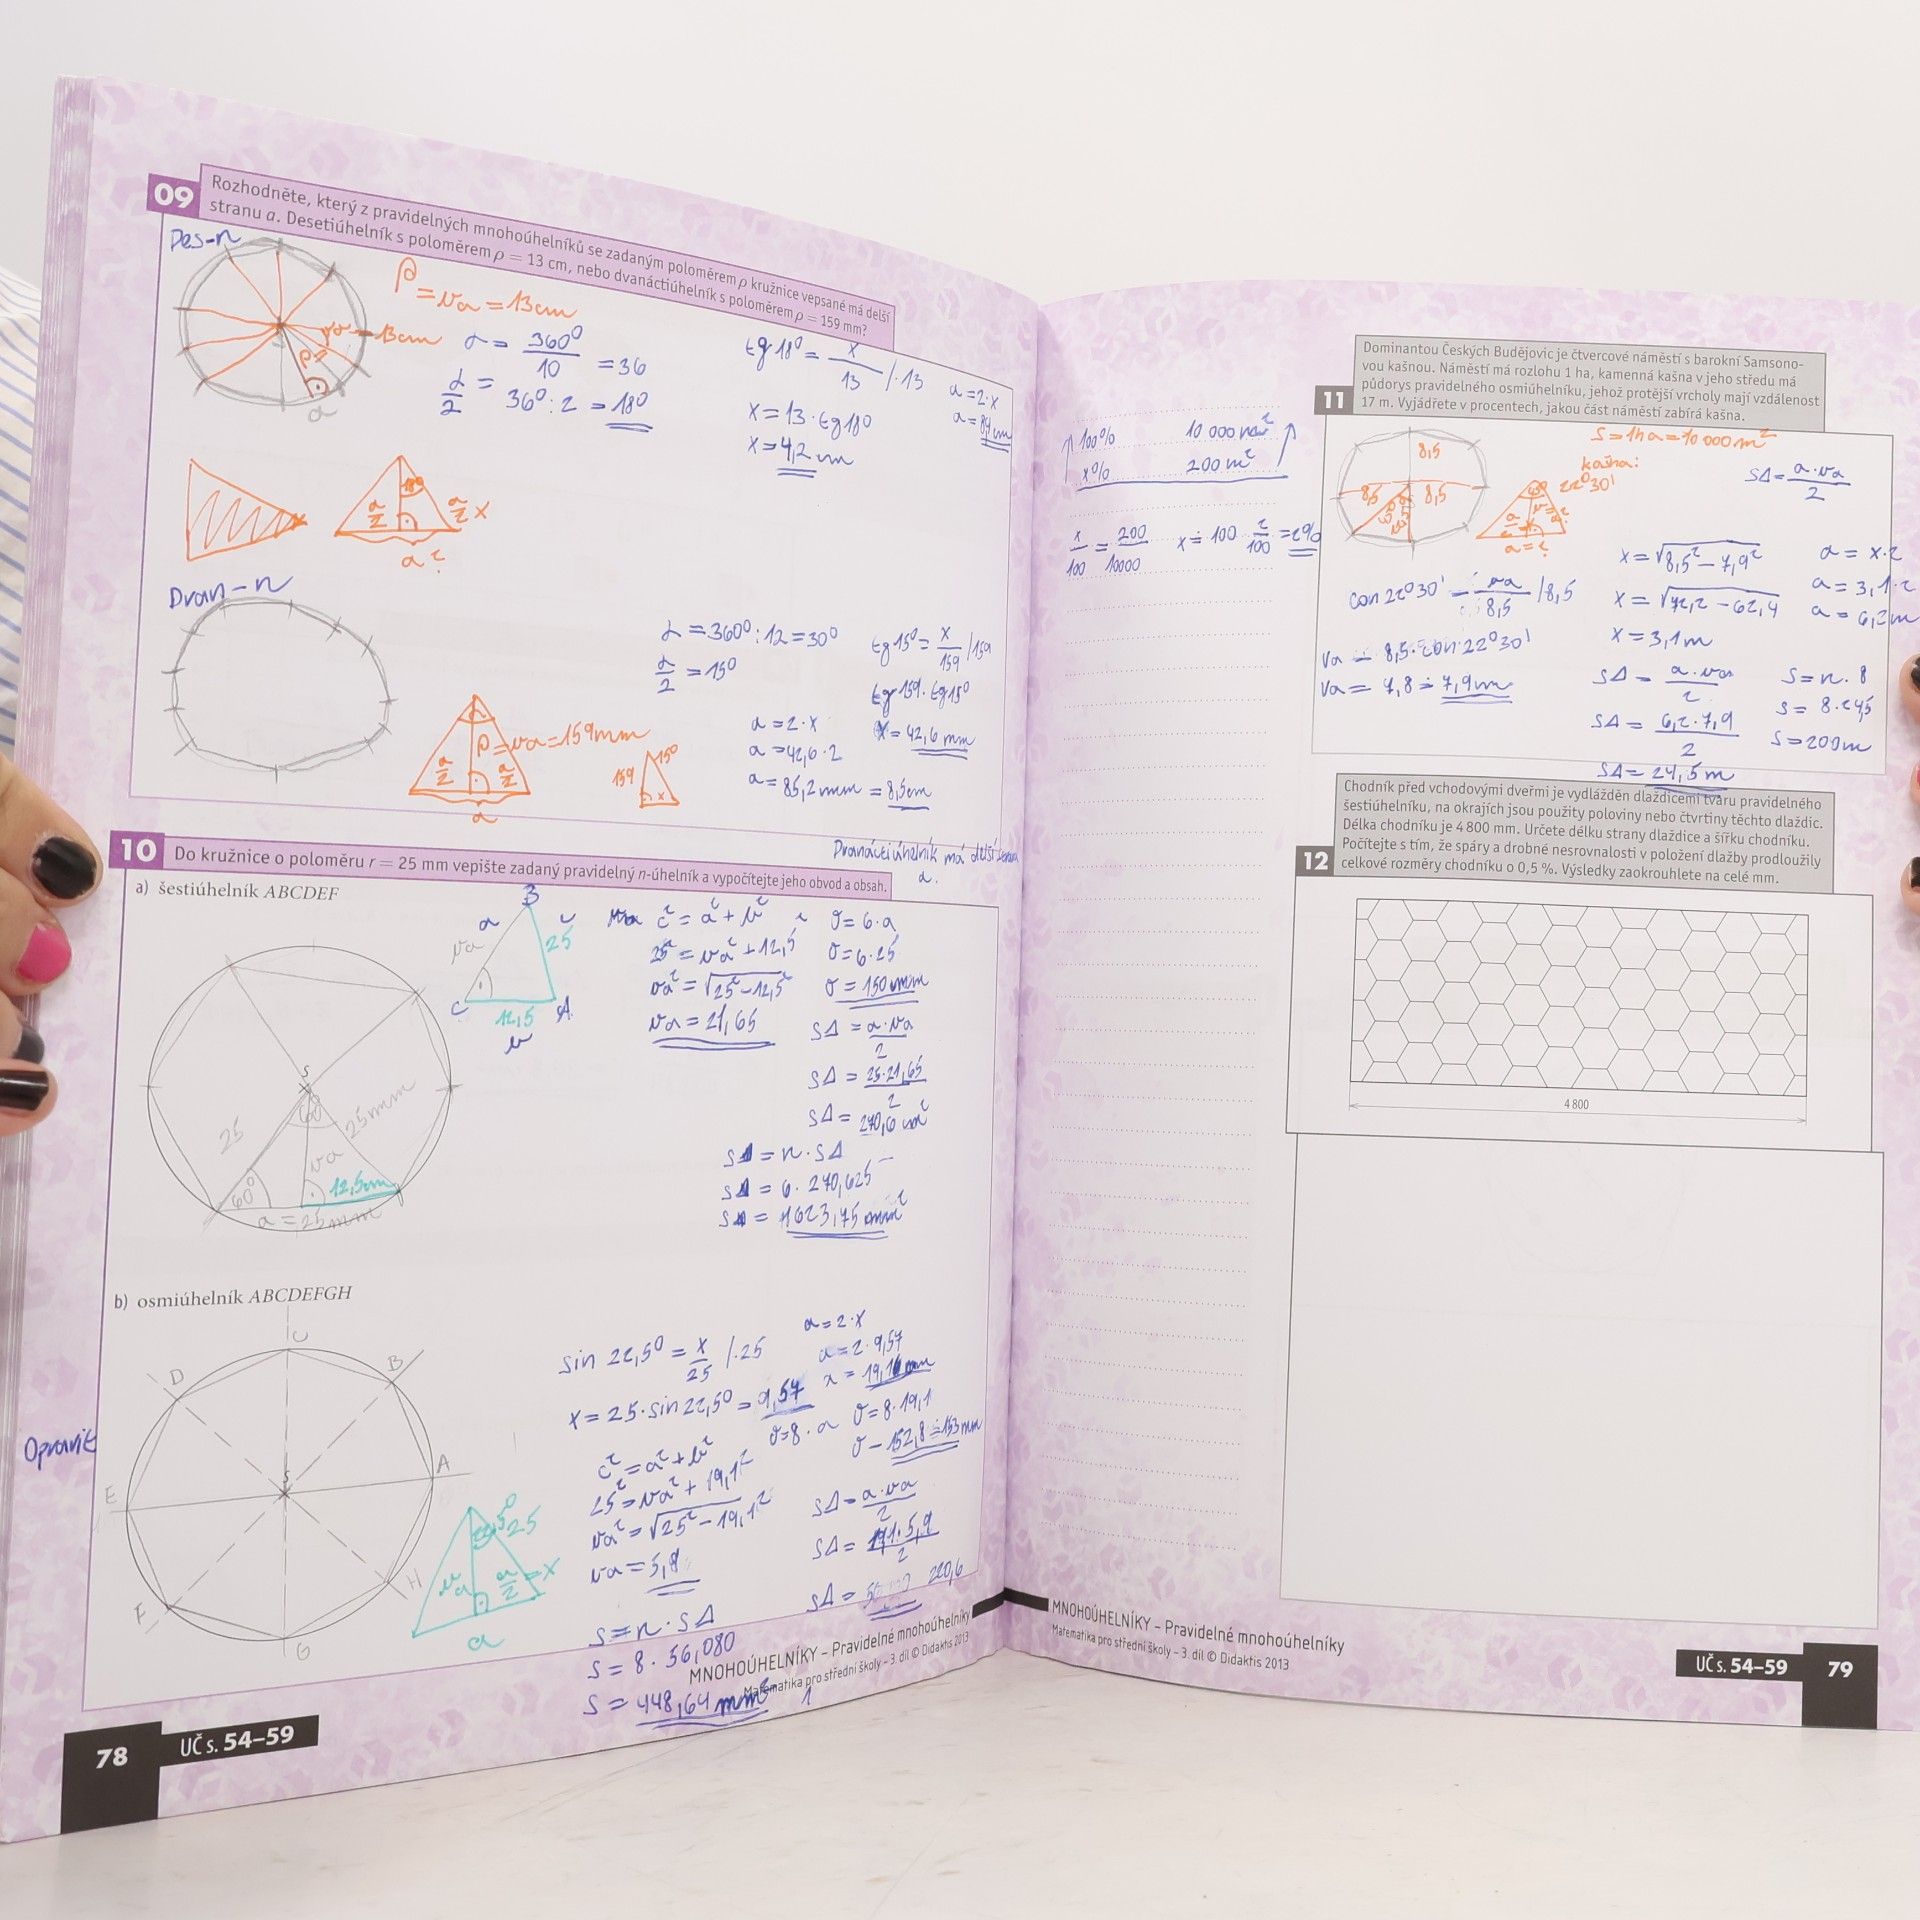 09 Rozhodněte, který z pravidelných mnohoúhelníků se zadaným poloměrem ρ kružnice vepsané má delší
stranu a. Desetiúhelník s poloměrem ρ = 13 cm, nebo dvanáctiúhelník s poloměrem ρ = 159 mm?
Des-n
ρ = va = 13cm
α = 360° / 10 = 36
α/2 = 36° : 2 = 18°
tg 18° = x/13 /·13
x = 13 · tg 18°
x = 4,2 cm
a = 2·x
a = 8,4 cm
a
18°
a/2
a/2 x
a?
Dvan-n
α = 360° : 12 = 30°
α/2 = 15°
tg 15° = x/159 /159
tg 159 · tg 15°
x = 42,6 mm
ρ = va = 159mm
a/2
a/2
a
159
15°
x
a = 2·x
a = 42,6 · 2
a = 85,2 mm = 8,5 cm
Dvanáctiúhelník má delší
a.
10 Do kružnice o poloměru r = 25 mm vepište zadaný pravidelný n-úhelník a vypočítejte jeho obvod a obsah.
a) šestiúhelník ABCDEF
B
a
va
25
C
12,5
A
b
c² = a² + b²
25² = va² + 12,5²
va² = √25² − 12,5²
va = 21,65
σ = 6·a
σ = 6·25
σ = 150 mm
SΔ = a·va / 2
SΔ = 25·21,65 / 2
SΔ = 270,6
S = n · SΔ
S = 6 · 270,625
S = 1623,75 mm²
S
60°
25
25mm
va
60°
12,5cm
a = 25mm
b) osmiúhelník ABCDEFGH
C
D
B
S
E
A
F
H
G
Opravit
sin 22,5° = x/25 /·25
x = 25·sin 22,5° = 9,57
a = 2·x
a = 2·9,57
σ = 8·a
σ = 8·19,1
σ = 152,8 ≐ 153 mm
c² = a² + b²
25² = va² + 19,1²
va² = √25² − 19,1²
SΔ = a·va / 2
25
va
a/2 = x
a
SΔ = 220,6
S = n · SΔ
S = 8 · 56,080
S = 448,64 mm²
MNOHOÚHELNÍKY – Pravidelné mnohoúhelníky
Matematika pro střední školy – 3. díl © Didaktis 2013
78 UČ s. 54–59
100% 10 000 m²
x% 200 m²
x/100 = 200/10000 x = 100 · 2/100 = 2%
11 Dominantou Českých Budějovic je čtvercové náměstí s barokní Samsono-
vou kašnou. Náměstí má rozlohu 1 ha, kamenná kašna v jeho středu má
půdorys pravidelného osmiúhelníku, jehož protější vrcholy mají vzdálenost
17 m. Vyjádřete v procentech, jakou část náměstí zabírá kašna.
S = 1ha = 10 000 m²
kašna:
8,5
8,5
8,5
22°30'
a = ?
SΔ = a·va / 2
cos 22°30' = va / 8,5 /8,5
va = 8,5·cos 22°30'
va = 7,8 ≐ 7,9m
x = √8,5² − 7,9²
x = √72,2 − 62,4
x = 3,1m
a = x·2
a = 3,1·2
a = 6,2m
SΔ = a·va / 2
SΔ = 6,2·7,9 / 2
SΔ = 24,5 m
S = n·8
S = 8·24,5
S = 200m
12 Chodník před vchodovými dveřmi je vydlážděn dlaždicemi tvaru pravidelného
šestiúhelníku, na okrajích jsou použity poloviny nebo čtvrtiny těchto dlaždic.
Délka chodníku je 4 800 mm. Určete délku strany dlaždice a šířku chodníku.
Počítejte s tím, že spáry a drobné nesrovnalosti v položení dlažby prodloužily
celkové rozměry chodníku o 0,5 %. Výsledky zaokrouhlete na celé mm.
4 800
MNOHOÚHELNÍKY – Pravidelné mnohoúhelníky
Matematika pro střední školy – 3. díl © Didaktis 2013
UČ s. 54–59 79